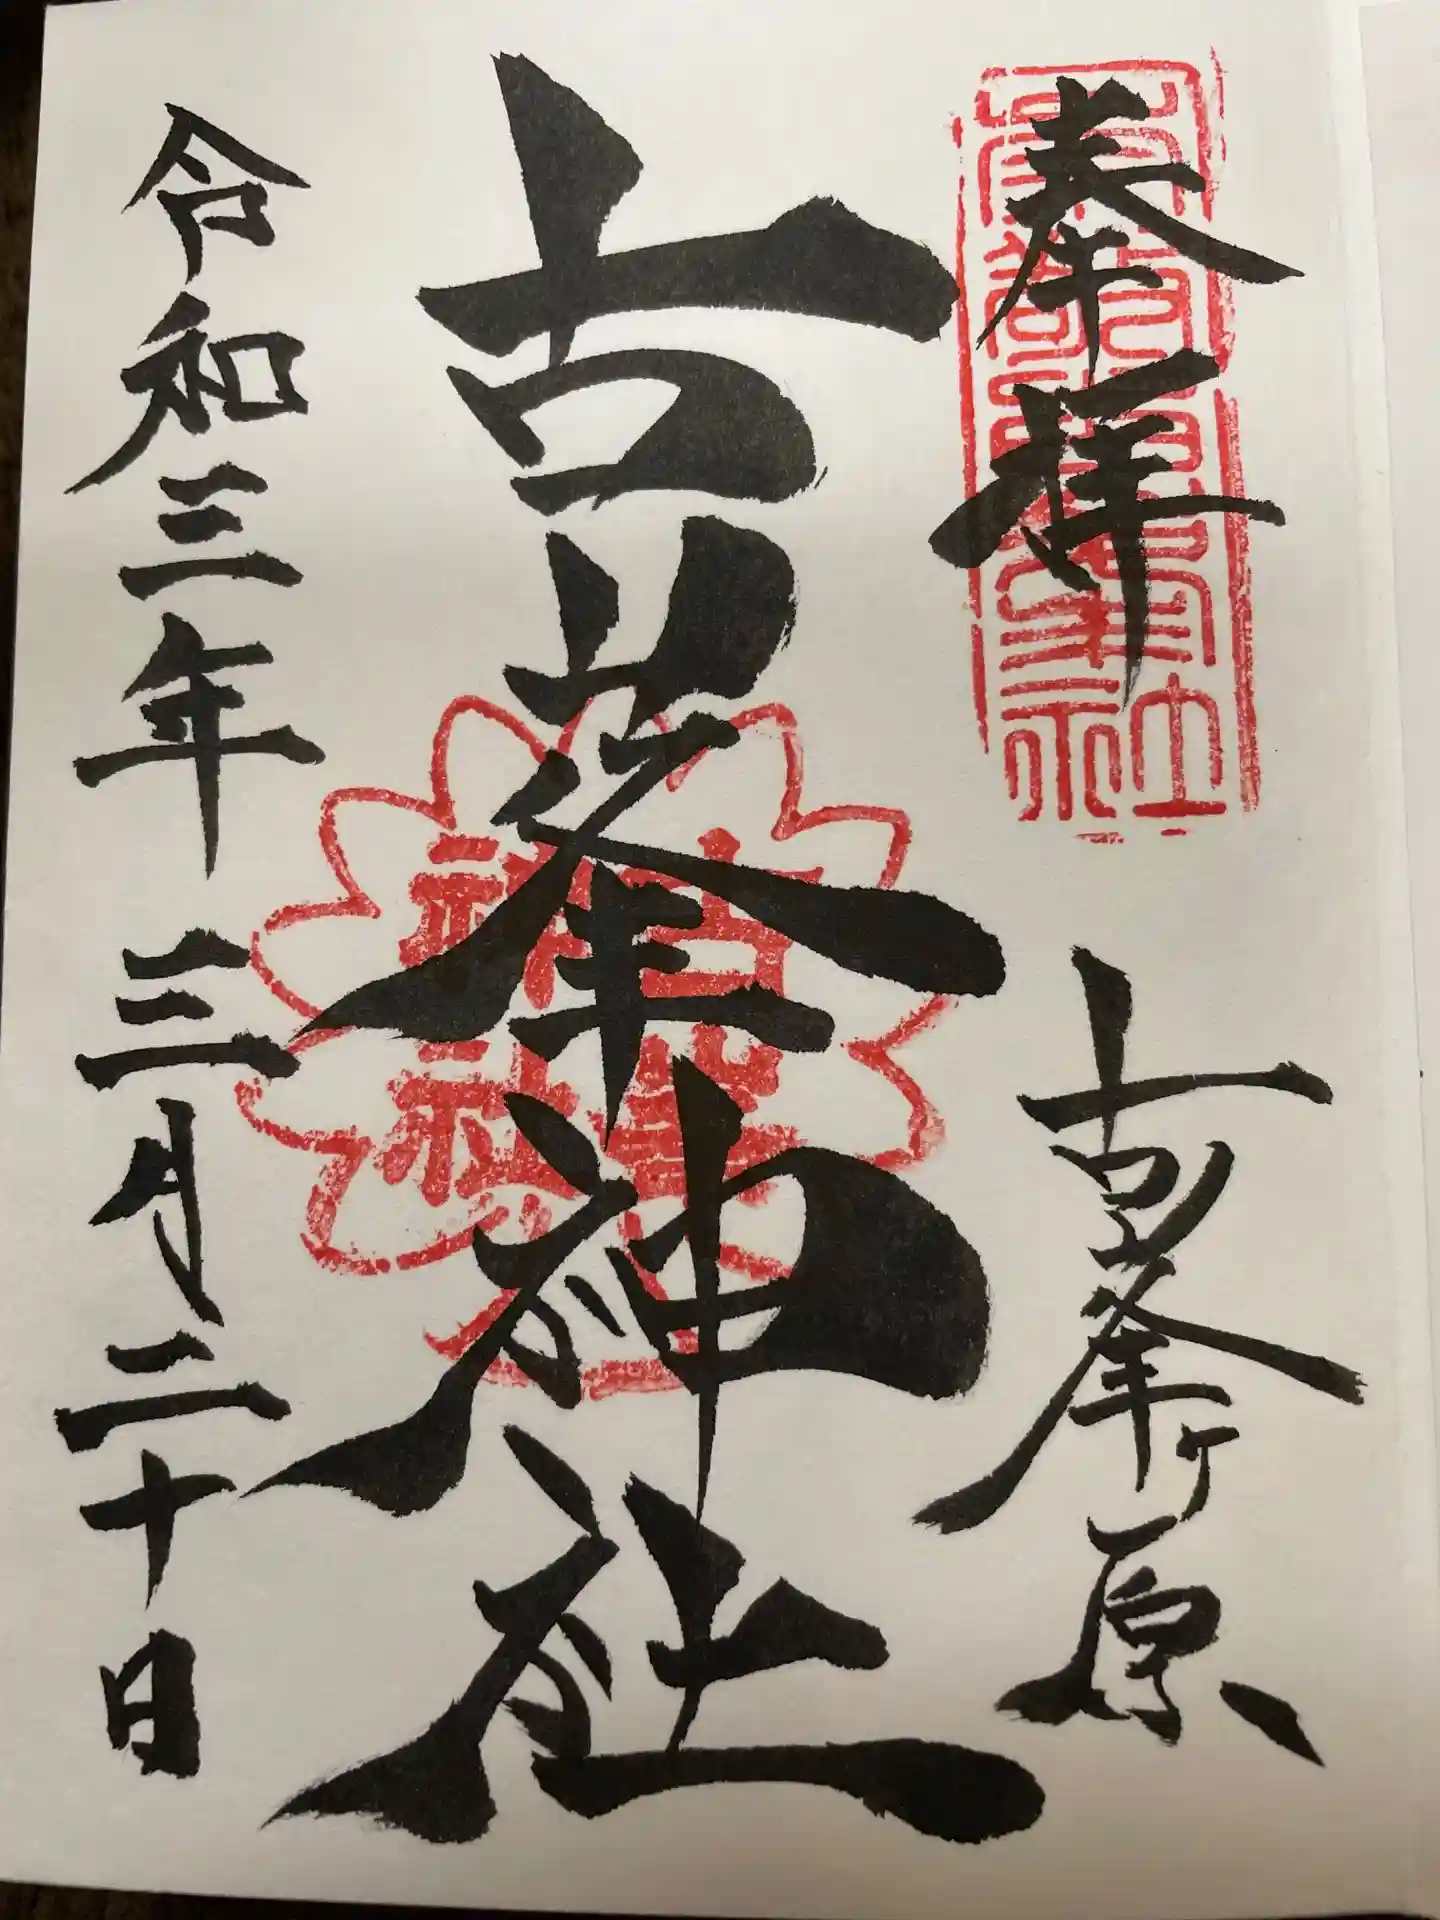 奉拝
古峯ヶ原
古峯神社
古峯
神社
令和三年三月二十日